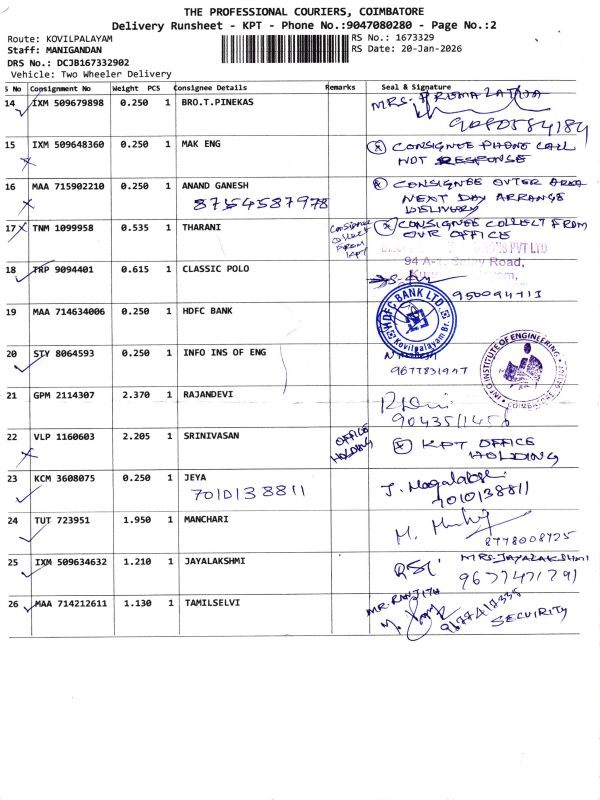 THE PROFESSIONAL COURIERS, COIMBATORE
Delivery Runsheet - KPT - Phone No.:9047080280 - Page No.:2
Route: KOVILPALAYAM
RS No.: 1673329
Staff: MANIGANDAN
RS Date: 20-Jan-2026
DRS No.: DCJB167332902
Vehicle: Two Wheeler Delivery
S No Consignment No Weight PCS Consignee Details Remarks Seal & Signature
14 IXM 509679898 0.250 1 BRO.T.PINEKAS MRS.
15 IXM 509648360 0.250 1 MAK ENG CONSIGNEE PHONE CALL
NOT RESPONSE
16 MAA 715902210 0.250 1 ANAND GANESH CONSIGNEE OUTER AREA
8754587978 NEXT DAY ARRANGE
DELIVERY
17 TNM 1099958 0.535 1 THARANI Consignee collect from kpt CONSIGNEE COLLECT FROM
OUR OFFICE
PVT LTD
Road,
18 TRP 9094401 0.615 1 CLASSIC POLO
950094713
19 MAA 714634006 0.250 1 HDFC BANK HDFC BANK LTD. Kovilpalayam Br.
20 STY 8064593 0.250 1 INFO INS OF ENG INFO INSTITUTE OF ENGINEERING COIMBATORE
21 GPM 2114307 2.370 1 RAJANDEVI
22 VLP 1160603 2.205 1 SRINIVASAN OFFICE HOLDING KPT OFFICE
HOLDING
23 KCM 3608075 0.250 1 JEYA
7010138811 7010138811
24 TUT 723951 1.950 1 MANCHARI
8778008725
25 IXM 509634632 1.210 1 JAYALAKSHMI MRS.JAYALAKSHMI
26 MAA 714212611 1.130 1 TAMILSELVI MR.RANJITH
SECUIRITY